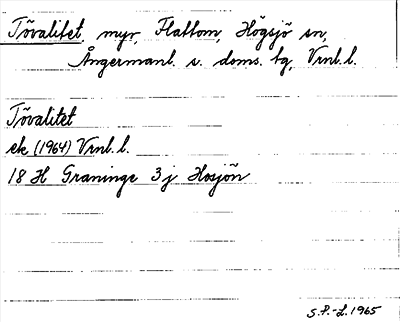 Tövalitet, myr, Flattom, Högsjö sn,
Ångermanl. s. doms. tg, Vrnl. l.
Tövalitet
ek (1964) Vrnl. l.
18 H Graninge 3 j Hosjön
S.P.-L. 1965